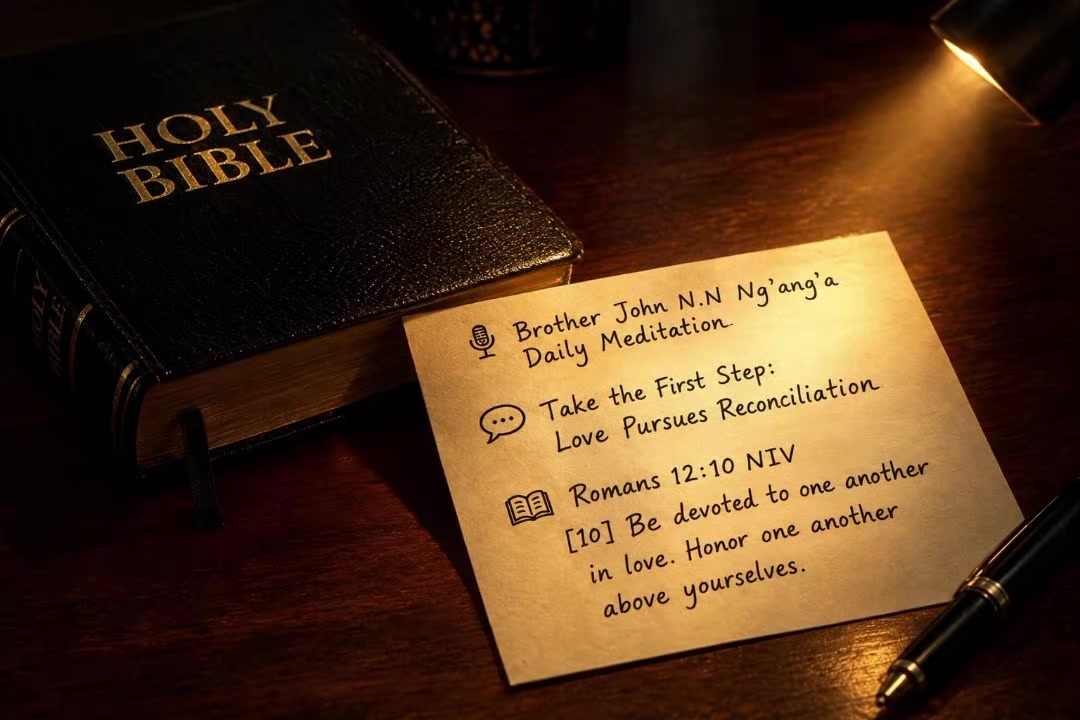 HOLY
BIBLE
HOLY
BIBLE
Brother John N.N Ng'ang'a
Daily Meditation.
Take the First Step:
Love Pursues Reconciliation
Romans 12:10 NIV
[10] Be devoted to one another
in love. Honor one another
above yourselves.